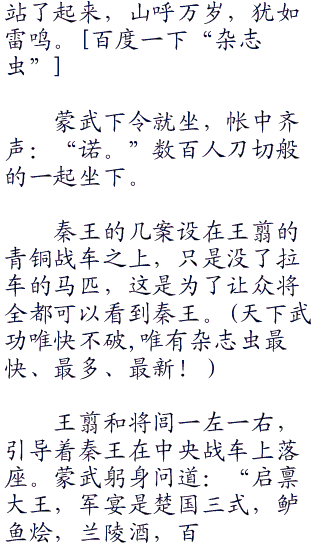 站了起来，山呼万岁，犹如
雷鸣。[百度一下“杂志
虫”]
蒙武下令就坐，帐中齐
声：“诺。”数百人刀切般
的一起坐下。
秦王的几案设在王翦的
青铜战车之上，只是没了拉
车的马匹，这是为了让众将
全都可以看到秦王。(天下武
功唯快不破,唯有杂志虫最
快、最多、最新！)
王翦和将闾一左一右，
引导着秦王在中央战车上落
座。蒙武躬身问道：“启禀
大王，军宴是楚国三式，鲈
鱼烩，兰陵酒，百